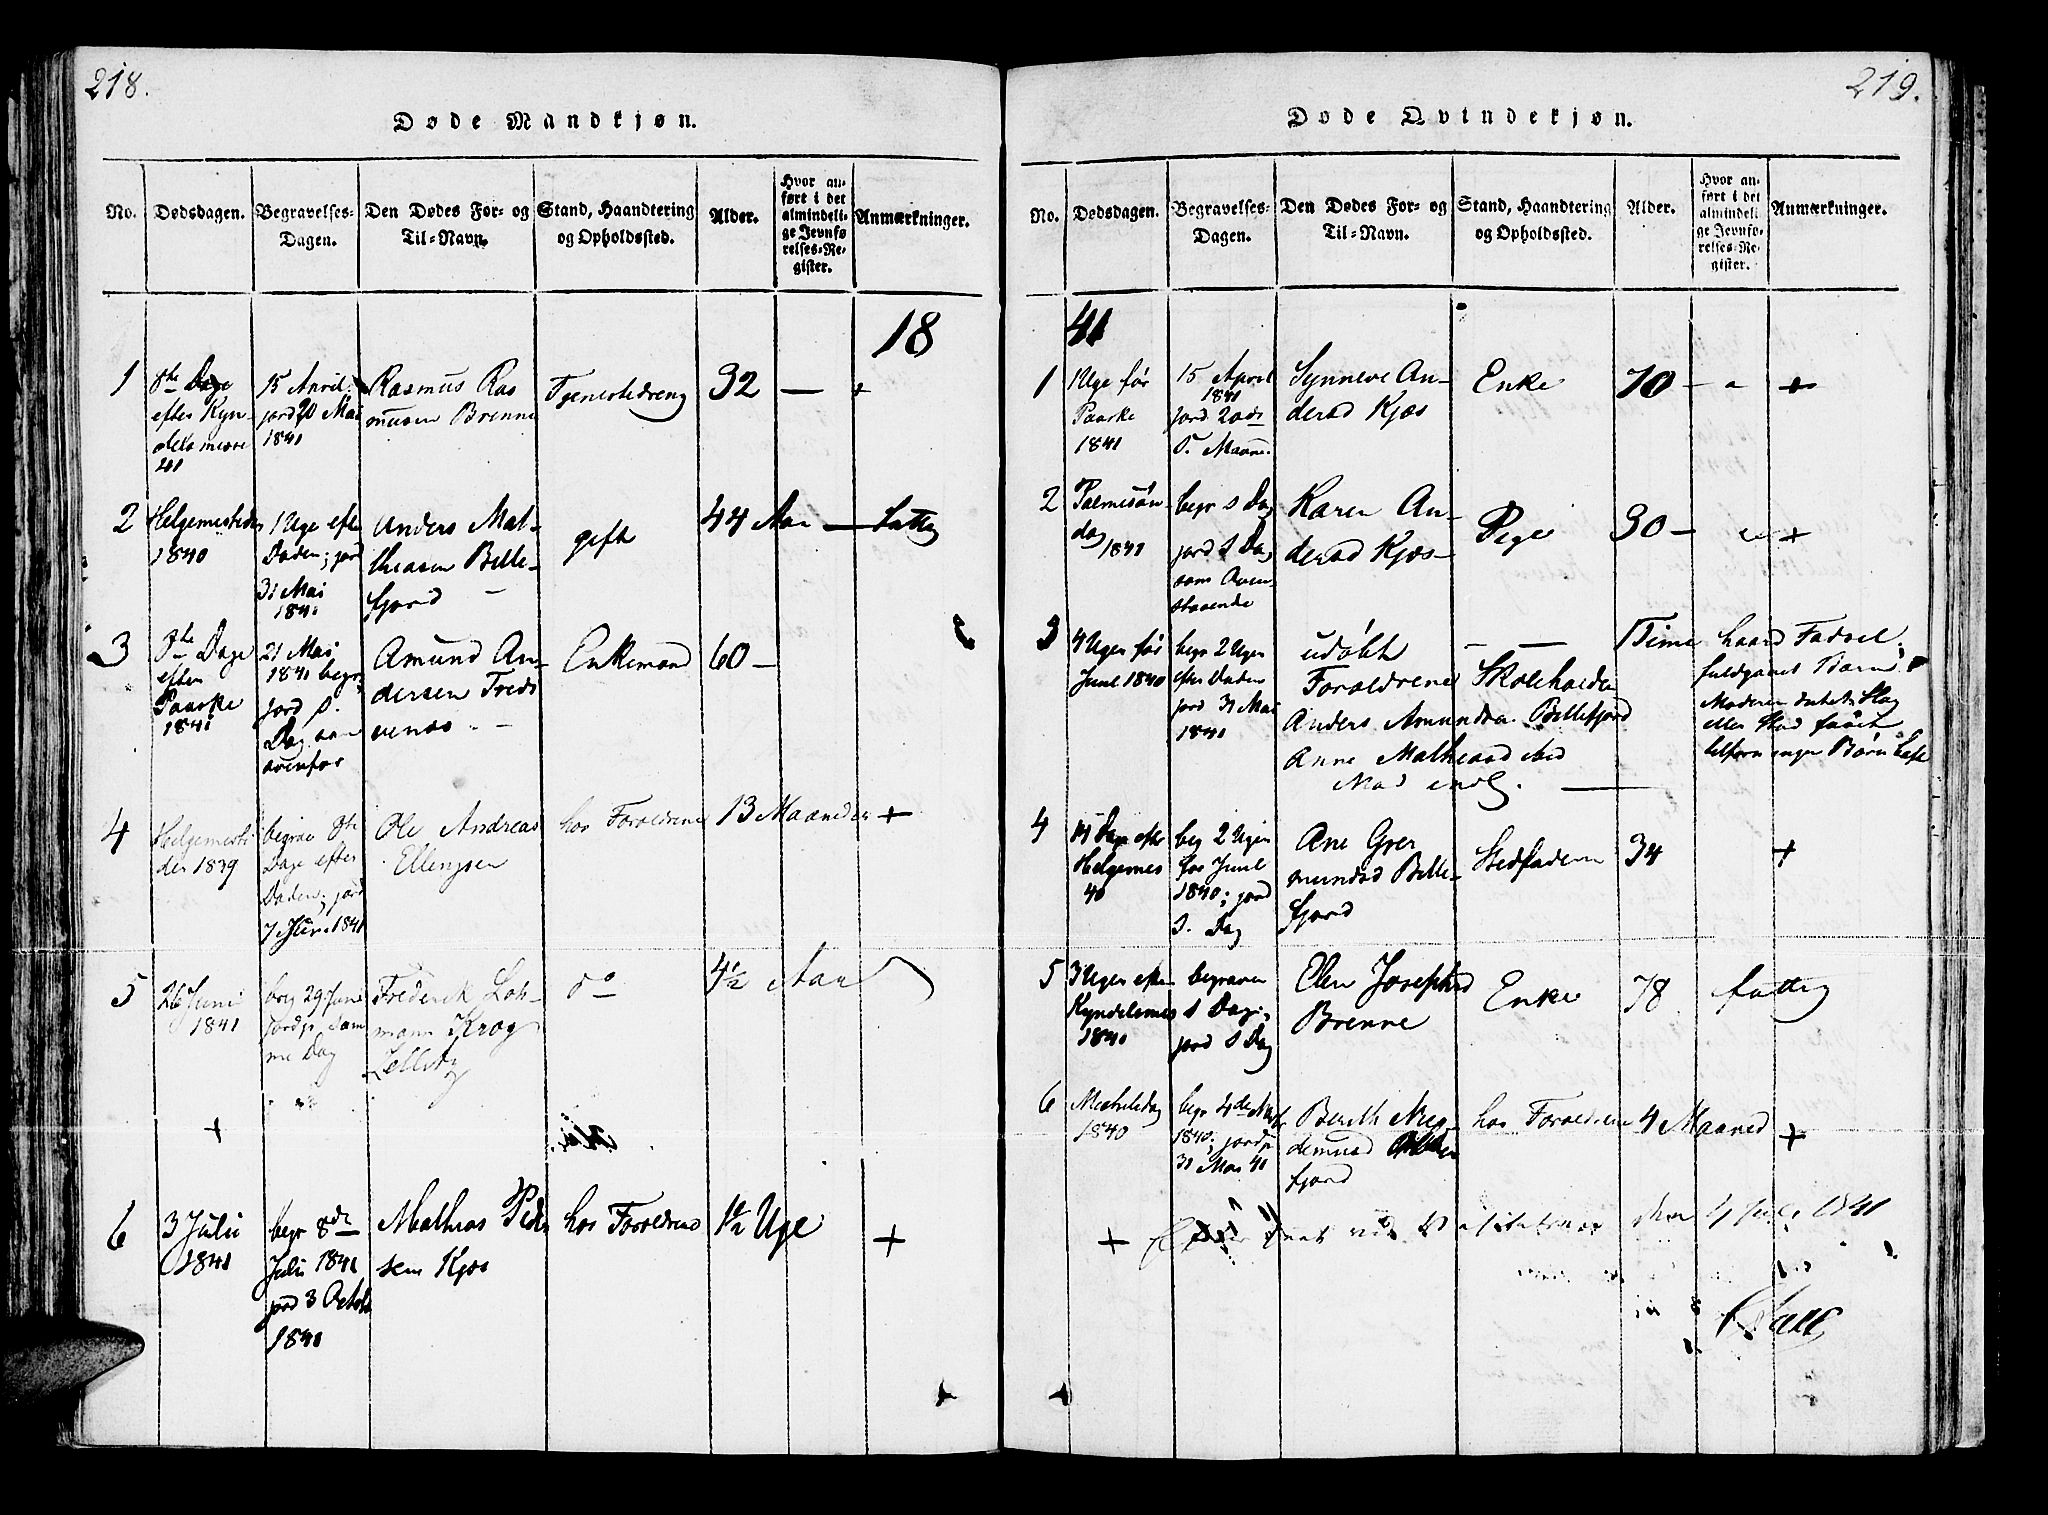 218.
Døde Mandkjøn.
No.
Dødsdagen.
Begravelses-
Dagen.
Den Dødes For- og
Til-Navn.
Stand, Haandtering
og Opholdssted.
Alder.
Hvor an-
ført i det
almindeli-
ge Jevnfø-
relses-Re-
gister.
Anmærkninger.
18
1
8de Dage
efter Kyn-
delsmesse
41
15 April
jord 20 Mai
1841
Rasmus Ras
musen Brenne
Tjenestedreng
32
—
+
2
Helgemestider
1840
1 Uge efter
Døden; jord
31 Mai
1841
Anders Mat-
theasen Bille-
fjord
gift
44 Aar
—
fattig
3
8de Dage
efter
Paaske
1841
21 Mai
1841 begr.
jord s.
Dag
ovenfor
Amund An-
dersen
Enkemand
60 —
4
Helgemesti
der 1839
begrav 8de
Dage efter
Døden; jord
7 Juni 1841
Ole Andreas
Ellingsen
hos Forældrene
13 Maaneder
+
5
26 Juni
1841
beg 29 Juni
jordp. sam
me Dag
Frederik Loh-
mann Krog
do
4½ Aar
+
6
3 Julii
1841
begr 8de
Julii 1841
jord 3 Octobr
1841
Mathias Peder
sen Kjæs
hos Forældrene
1½ Uge
+
219.
Døde Qvindekjøn.
No.
Dødsdagen.
Begravelses-
Dagen.
Den Dødes For- og
Til-Navn.
Stand, Haandtering
og Opholdssted.
Alder.
Hvor an-
ført i det
almindeli-
ge Jevnfø-
relses-Re-
gister.
Anmærkninger.
41
1
1 Uge før
Paaske
1841
15 April
1841
jord. 20de
s. Maane.
Synneve An-
dersd Kjæs
Enke
70 —
+
2
Palmesøn-
dag 1841
begr s Dag
jord s Dag
som oven-
staaende
Karen An-
dersd Kjæs —
Pige
30 —
+
3
4 Uger før
Juul 1840
begr 2 Uger
efter Døden
jord 31 Mai
1841
udøbt
Forældrene
Anders Amundsen Billefjord
Anne Matheasd ibid
Skoleholder
1 Time
haard Fødsel
fuldbaaret Barn
Moderen
eller Stød
tilforn ingen Børn
4
14 Dage efter
Helgemes
40
beg 2 Uger
før Juul
1840; jord
s. Dag
Ane Gre
mundsd Bille-
fjord
34
+
5
3 Uger efter
Kyndelsmes
1840
begraven
s Dag;
jord s Dag
Elen Josephsd
Brenne
Enke
78
fattig
6
Mikelsdag
1840
begr 4de
1840; jordp
31 Mai 41
Bereth
fjord
hos Forældrene
4 Maaned
+
+
ved Visitatsen den 4 Juli 1841